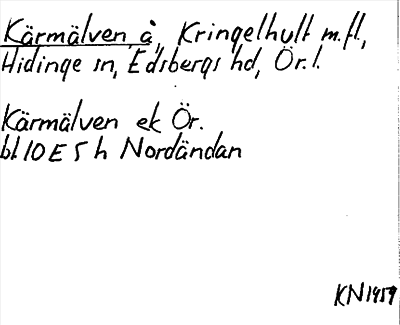 Kärmälven, å, Kringelhult m.fl,
Hidinge sn, Edsbergs hd, Ör. l.
Kärmälven ek Ör.
bl 10 E 5 h Nordändan
KN 1959